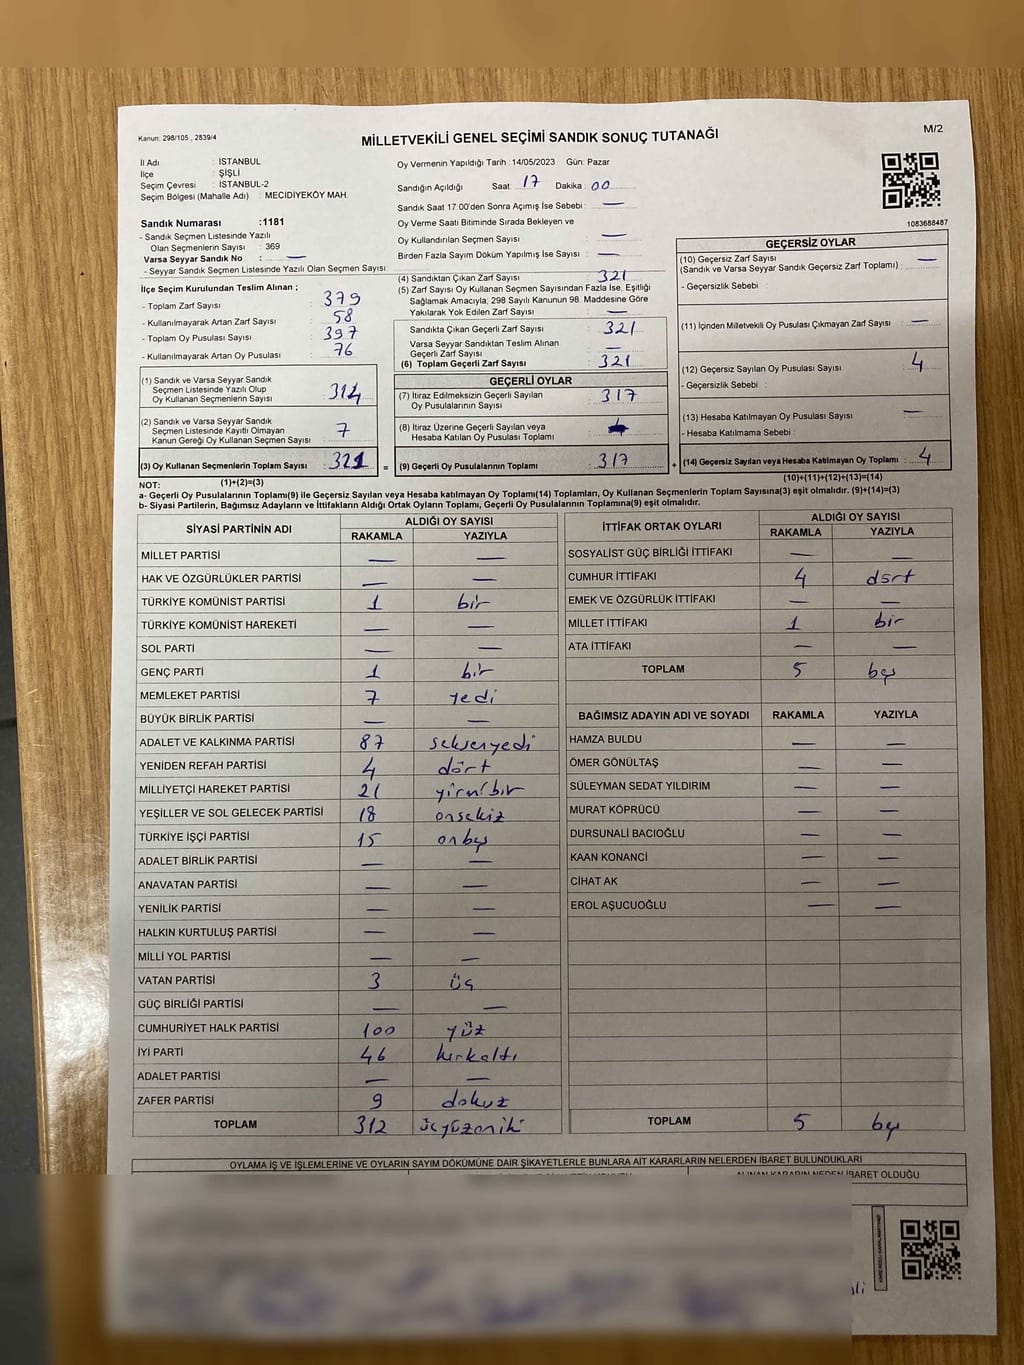 Kanun: 298/105 , 2839/4
MİLLETVEKİLİ GENEL SEÇİMİ SANDIK SONUÇ TUTANAĞI
M/2
İl Adı : İSTANBUL
İlçe : ŞİŞLİ
Seçim Çevresi : İSTANBUL-2
Seçim Bölgesi (Mahalle Adı) : MECİDİYEKÖY MAH.
Sandık Numarası :1181
- Sandık Seçmen Listesinde Yazılı
Olan Seçmenlerin Sayısı : 369
Varsa Seyyar Sandık No : —
- Seyyar Sandık Seçmen Listesinde Yazılı Olan Seçmen Sayısı:
İlçe Seçim Kurulundan Teslim Alınan ;
- Toplam Zarf Sayısı : 379
- Kullanılmayarak Artan Zarf Sayısı : 58
- Toplam Oy Pusulası Sayısı : 397
- Kullanılmayarak Artan Oy Pusulası : 76
(1) Sandık ve Varsa Seyyar Sandık
Seçmen Listesinde Yazılı Olup
Oy Kullanan Seçmenlerin Sayısı : 314
(2) Sandık ve Varsa Seyyar Sandık
Seçmen Listesinde Kayıtlı Olmayan
Kanun Gereği Oy Kullanan Seçmen Sayısı : 7
(3) Oy Kullanan Seçmenlerin Toplam Sayısı : 321 =
(1)+(2)=(3)
Oy Vermenin Yapıldığı Tarih :14/05/2023 Gün: Pazar
Sandığın Açıldığı Saat: 17 Dakika: 00
Sandık Saat 17:00'den Sonra Açımış İse Sebebi : —
Oy Verme Saati Bitiminde Sırada Bekleyen ve
Oy Kullandırılan Seçmen Sayısı : —
Birden Fazla Sayım Döküm Yapılmış İse Sayısı : —
(4) Sandıktan Çıkan Zarf Sayısı : 321
(5) Zarf Sayısı Oy Kullanan Seçmen Sayısından Fazla İse, Eşitliği
Sağlamak Amacıyla; 298 Sayılı Kanunun 98. Maddesine Göre
Yakılarak Yok Edilen Zarf Sayısı : —
Sandıkta Çıkan Geçerli Zarf Sayısı : 321
Varsa Seyyar Sandıktan Teslim Alınan
Geçerli Zarf Sayısı : —
(6) Toplam Geçerli Zarf Sayısı : 321
GEÇERLİ OYLAR
(7) İtiraz Edilmeksizin Geçerli Sayılan
Oy Pusulalarının Sayısı : 317
(8) İtiraz Üzerine Geçerli Sayılan veya
Hesaba Katılan Oy Pusulası Toplamı :
(9) Geçerli Oy Pusulalarının Toplamı : 317 +
1083688487
GEÇERSİZ OYLAR
(10) Geçersiz Zarf Sayısı
(Sandık ve Varsa Seyyar Sandık Geçersiz Zarf Toplamı) : —
- Geçersizlik Sebebi :
(11) İçinden Milletvekili Oy Pusulası Çıkmayan Zarf Sayısı : —
(12) Geçersiz Sayılan Oy Pusulası Sayısı : 4
- Geçersizlik Sebebi :
(13) Hesaba Katılmayan Oy Pusulası Sayısı : —
- Hesaba Katılmama Sebebi :
(14) Geçersiz Sayılan veya Hesaba Katılmayan Oy Toplamı : 4
(10)+(11)+(12)+(13)=(14)
NOT:
a- Geçerli Oy Pusulalarının Toplamı(9) ile Geçersiz Sayılan veya Hesaba katılmayan Oy Toplamı(14) Toplamları, Oy Kullanan Seçmenlerin Toplam Sayısına(3) eşit olmalıdır. (9)+(14)=(3)
b- Siyasi Partilerin, Bağımsız Adayların ve İttifakların Aldığı Ortak Oyların Toplamı, Geçerli Oy Pusulalarının Toplamına(9) eşit olmalıdır.
SİYASİ PARTİNİN ADI ALDIĞI OY SAYISI
RAKAMLA YAZIYLA
MİLLET PARTİSİ — —
HAK VE ÖZGÜRLÜKLER PARTİSİ — —
TÜRKİYE KOMÜNİST PARTİSİ 1 bir
TÜRKİYE KOMÜNİST HAREKETİ — —
SOL PARTİ — —
GENÇ PARTİ 1 bir
MEMLEKET PARTİSİ 7 yedi
BÜYÜK BİRLİK PARTİSİ — —
ADALET VE KALKINMA PARTİSİ 87 seksenyedi
YENİDEN REFAH PARTİSİ 4 dört
MİLLİYETÇİ HAREKET PARTİSİ 21 yirmibir
YEŞİLLER VE SOL GELECEK PARTİSİ 18 onsekiz
TÜRKİYE İŞÇİ PARTİSİ 15 onbeş
ADALET BİRLİK PARTİSİ — —
ANAVATAN PARTİSİ — —
YENİLİK PARTİSİ — —
HALKIN KURTULUŞ PARTİSİ — —
MİLLİ YOL PARTİSİ — —
VATAN PARTİSİ 3 üç
GÜÇ BİRLİĞİ PARTİSİ — —
CUMHURİYET HALK PARTİSİ 100 yüz
İYİ PARTİ 46 kırkaltı
ADALET PARTİSİ — —
ZAFER PARTİSİ 9 dokuz
TOPLAM 312 üçyüzoniki
İTTİFAK ORTAK OYLARI ALDIĞI OY SAYISI
RAKAMLA YAZIYLA
SOSYALİST GÜÇ BİRLİĞİ İTTİFAKI — —
CUMHUR İTTİFAKI 4 dört
EMEK VE ÖZGÜRLÜK İTTİFAKI — —
MİLLET İTTİFAKI 1 bir
ATA İTTİFAKI — —
TOPLAM 5 beş
BAĞIMSIZ ADAYIN ADI VE SOYADI RAKAMLA YAZIYLA
HAMZA BULDU — —
ÖMER GÖNÜLTAŞ — —
SÜLEYMAN SEDAT YILDIRIM — —
MURAT KÖPRÜCÜ — —
DURSUNALİ BACIOĞLU — —
KAAN KONANCİ — —
CİHAT AK — —
EROL AŞUCUOĞLU — —
TOPLAM 5 beş
OYLAMA İŞ VE İŞLEMLERİNE VE OYLARIN SAYIM DÖKÜMÜNE DAİR ŞİKAYETLERLE BUNLARA AİT KARARLARIN NELERDEN İBARET BULUNDUKLARI
ALINAN KARARIN NEDEN İBARET OLDUĞU